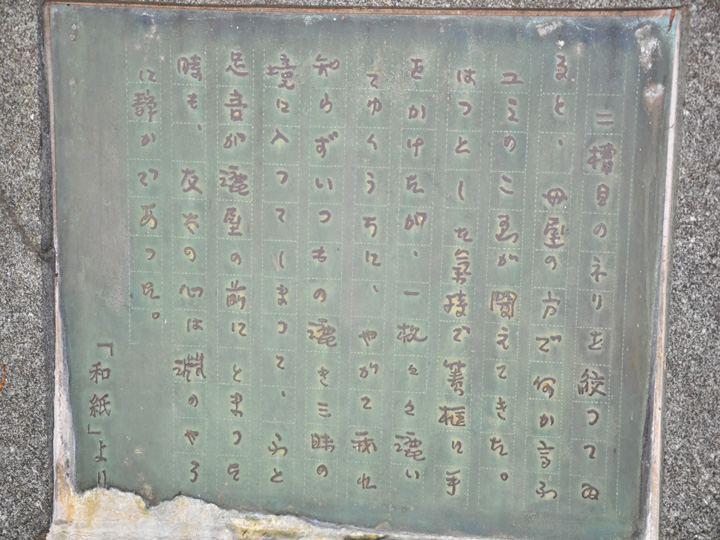 二槽目のネリを絞つてゐ
ると、母屋の方で何か言ふ
ユミのこゑが聞えてきた。
はつとした気持で簀框に手
をかけたが、一枚々々漉い
てゆくうちに、やがて我れ
知らずいつもの漉き三昧の
境に入つてしまつて、ふと
足音が漉屋の前にとまつた
時も、友太の心は淵のやう
に静かであつた。
「和紙」より